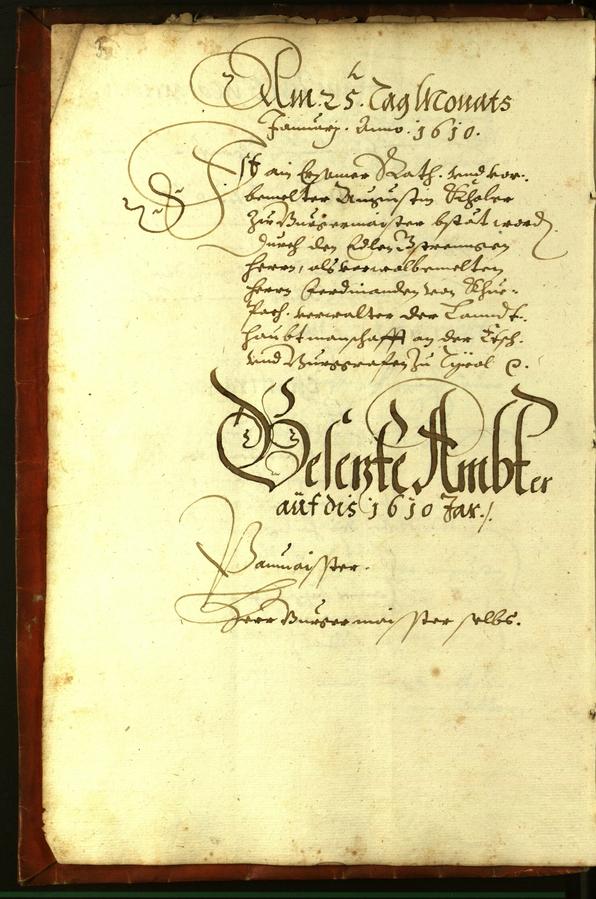 Am 25. Tag Monats
Januarj. Anno. 1610.
Ist ain Ersamer Rath. vnd vor-
bemelter Augustin Scholer
zu Burgermaister bstät word
durch den Edlen Gestrenngen
Herrn, als vorwolbemelten
Herrn Ferdinanden von Khue-
pach. verwalter der Lanndts-
haubtmanschafft an der Etsch.
vnd Burggrafen zu Tyrol
Besetzte Ambter
auf dis 1610 Jar./.
Paumaisster.
Herr Burgermaisster selbs.